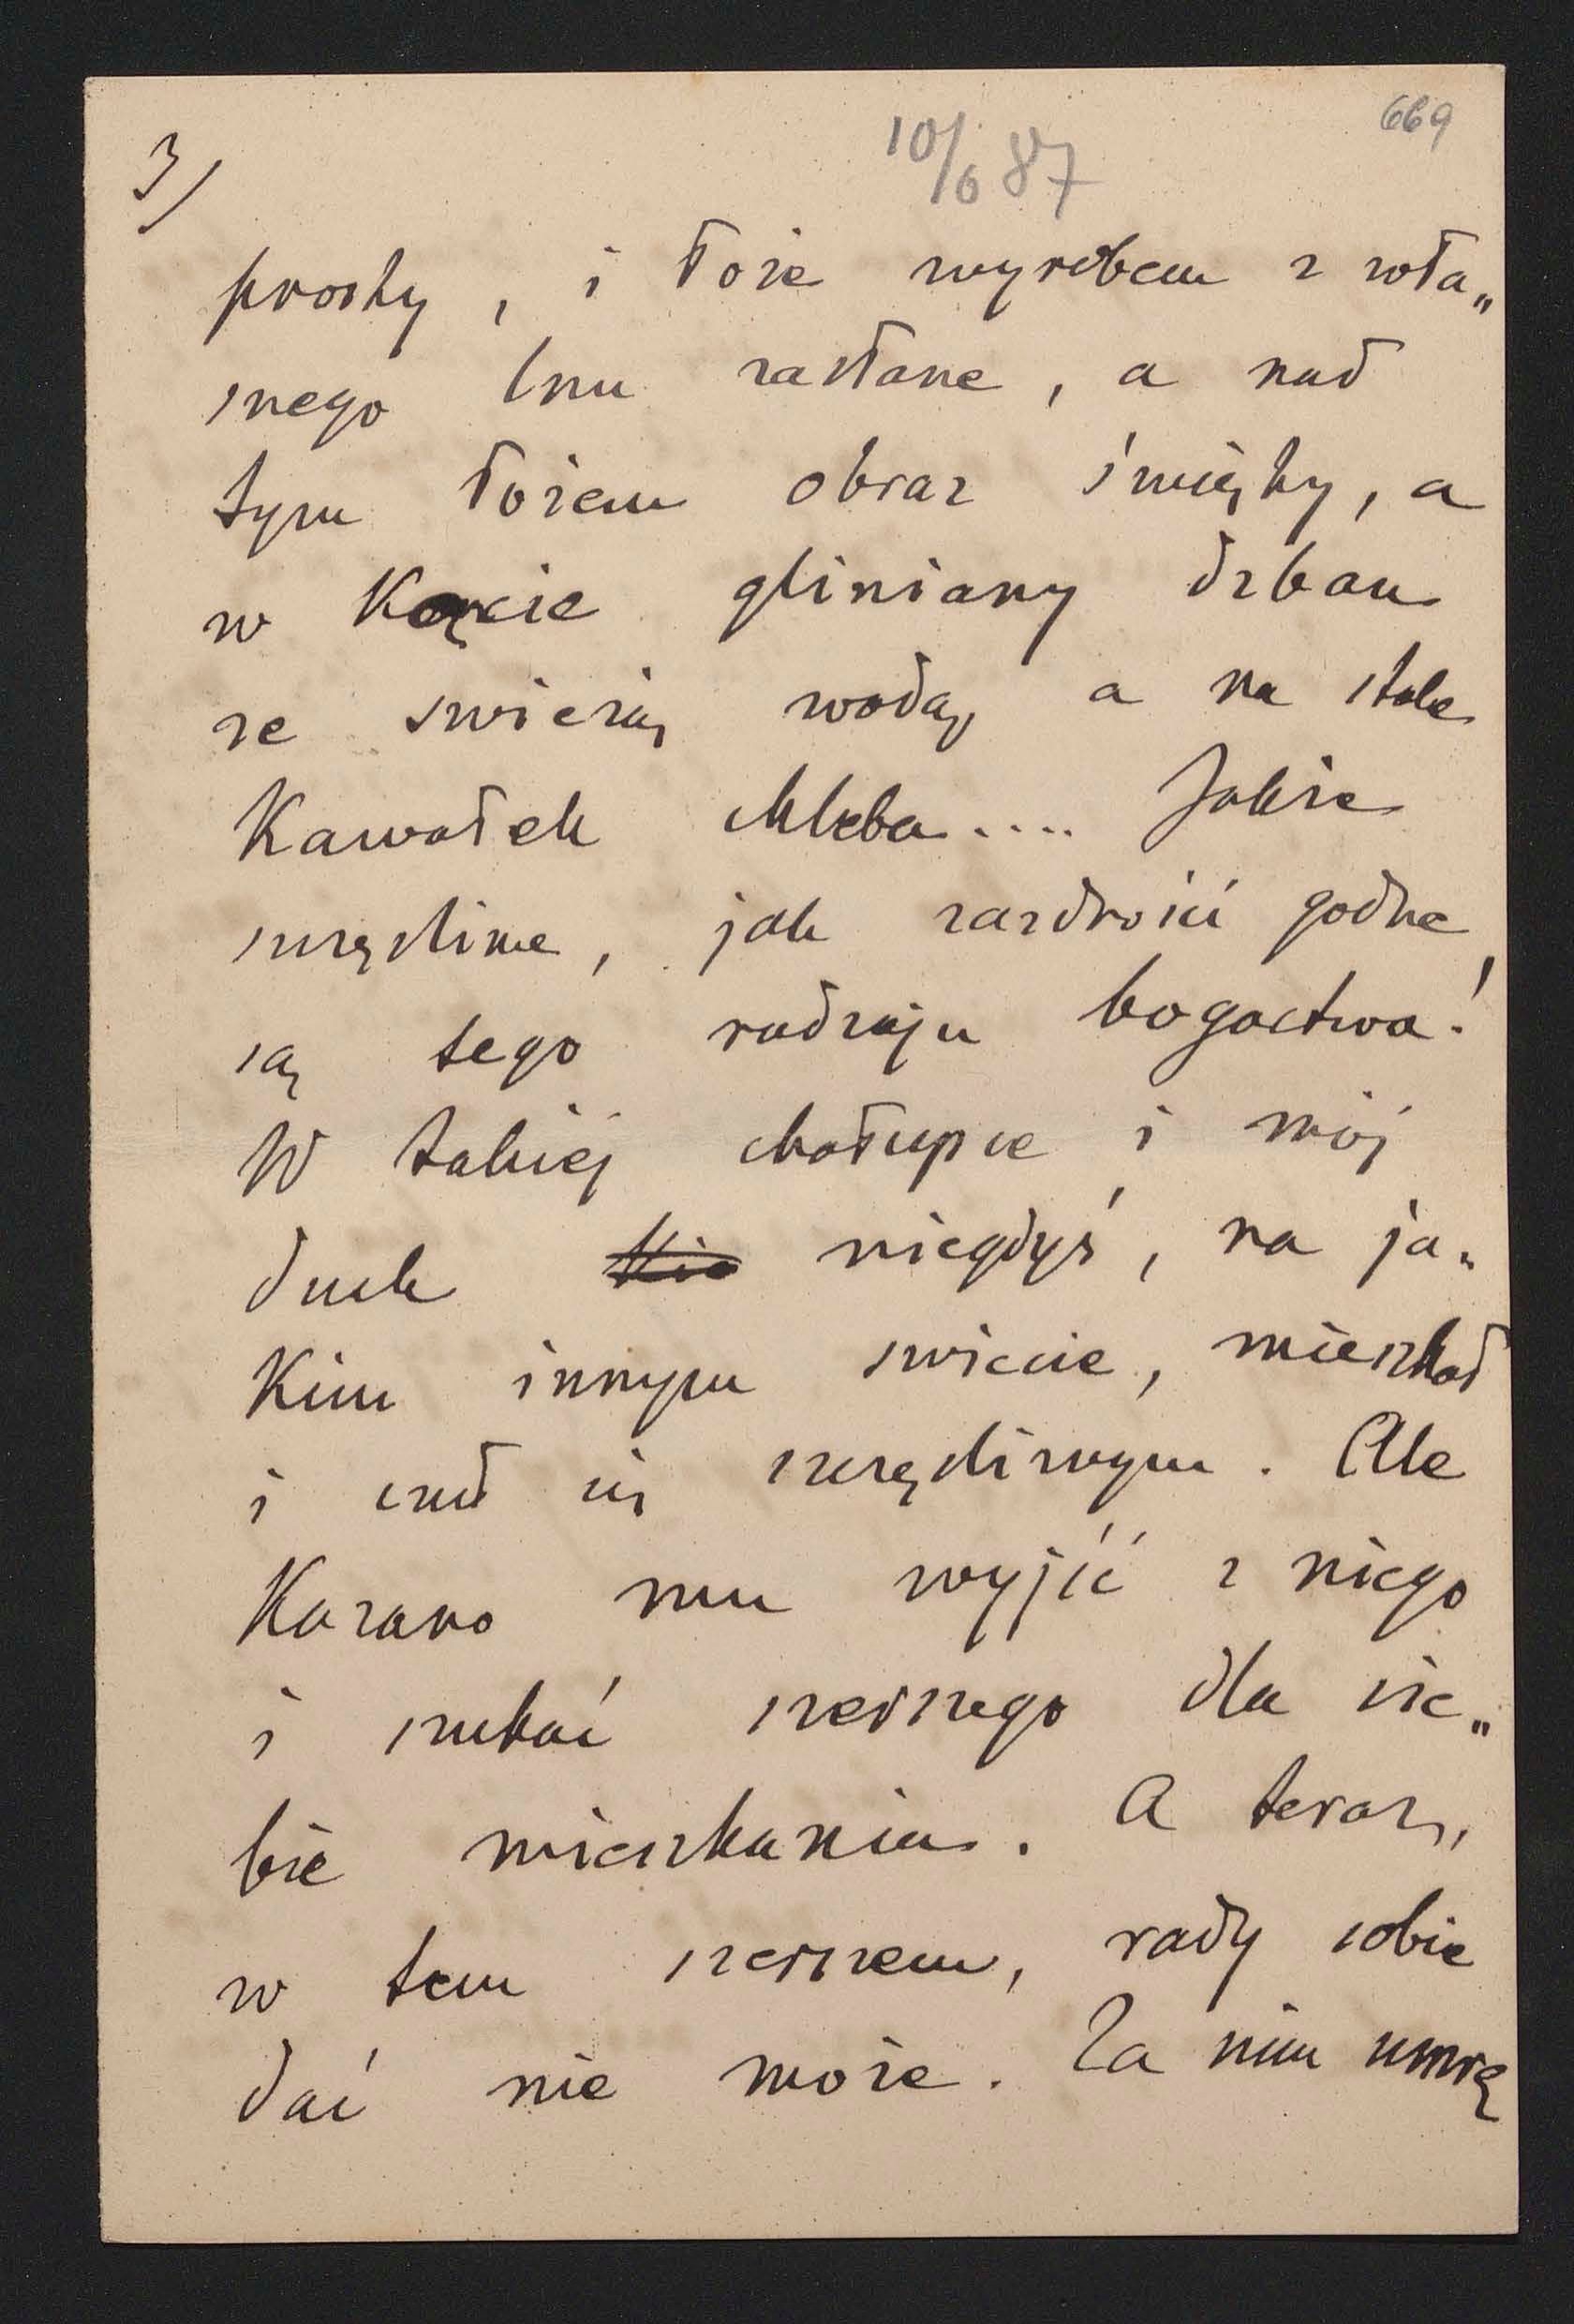 669
10/6 87
3/
prosty, i łoże wyrobem z wła„
snego lnu zasłane, a nad
tym łożem obraz święty, a
w kącie gliniany dzban
ze swieżą wodą, a na stole
kawałek chleba.... Jakże
szczęśliwe, jak zazdrości godne
są tego rodzaju bogactwa!
W takiej chałupce i mój
duch niegdyś, na ja„
kim innym swiecie, mieszkał
i czuł się szczęśliwym. Ale
Kazano mu wyjść z niego
i szukać szerszego dla sie„
bie mieszkania. A teraz,
w tem szerszem, rady sobie
dać nie może. Za nim umrę